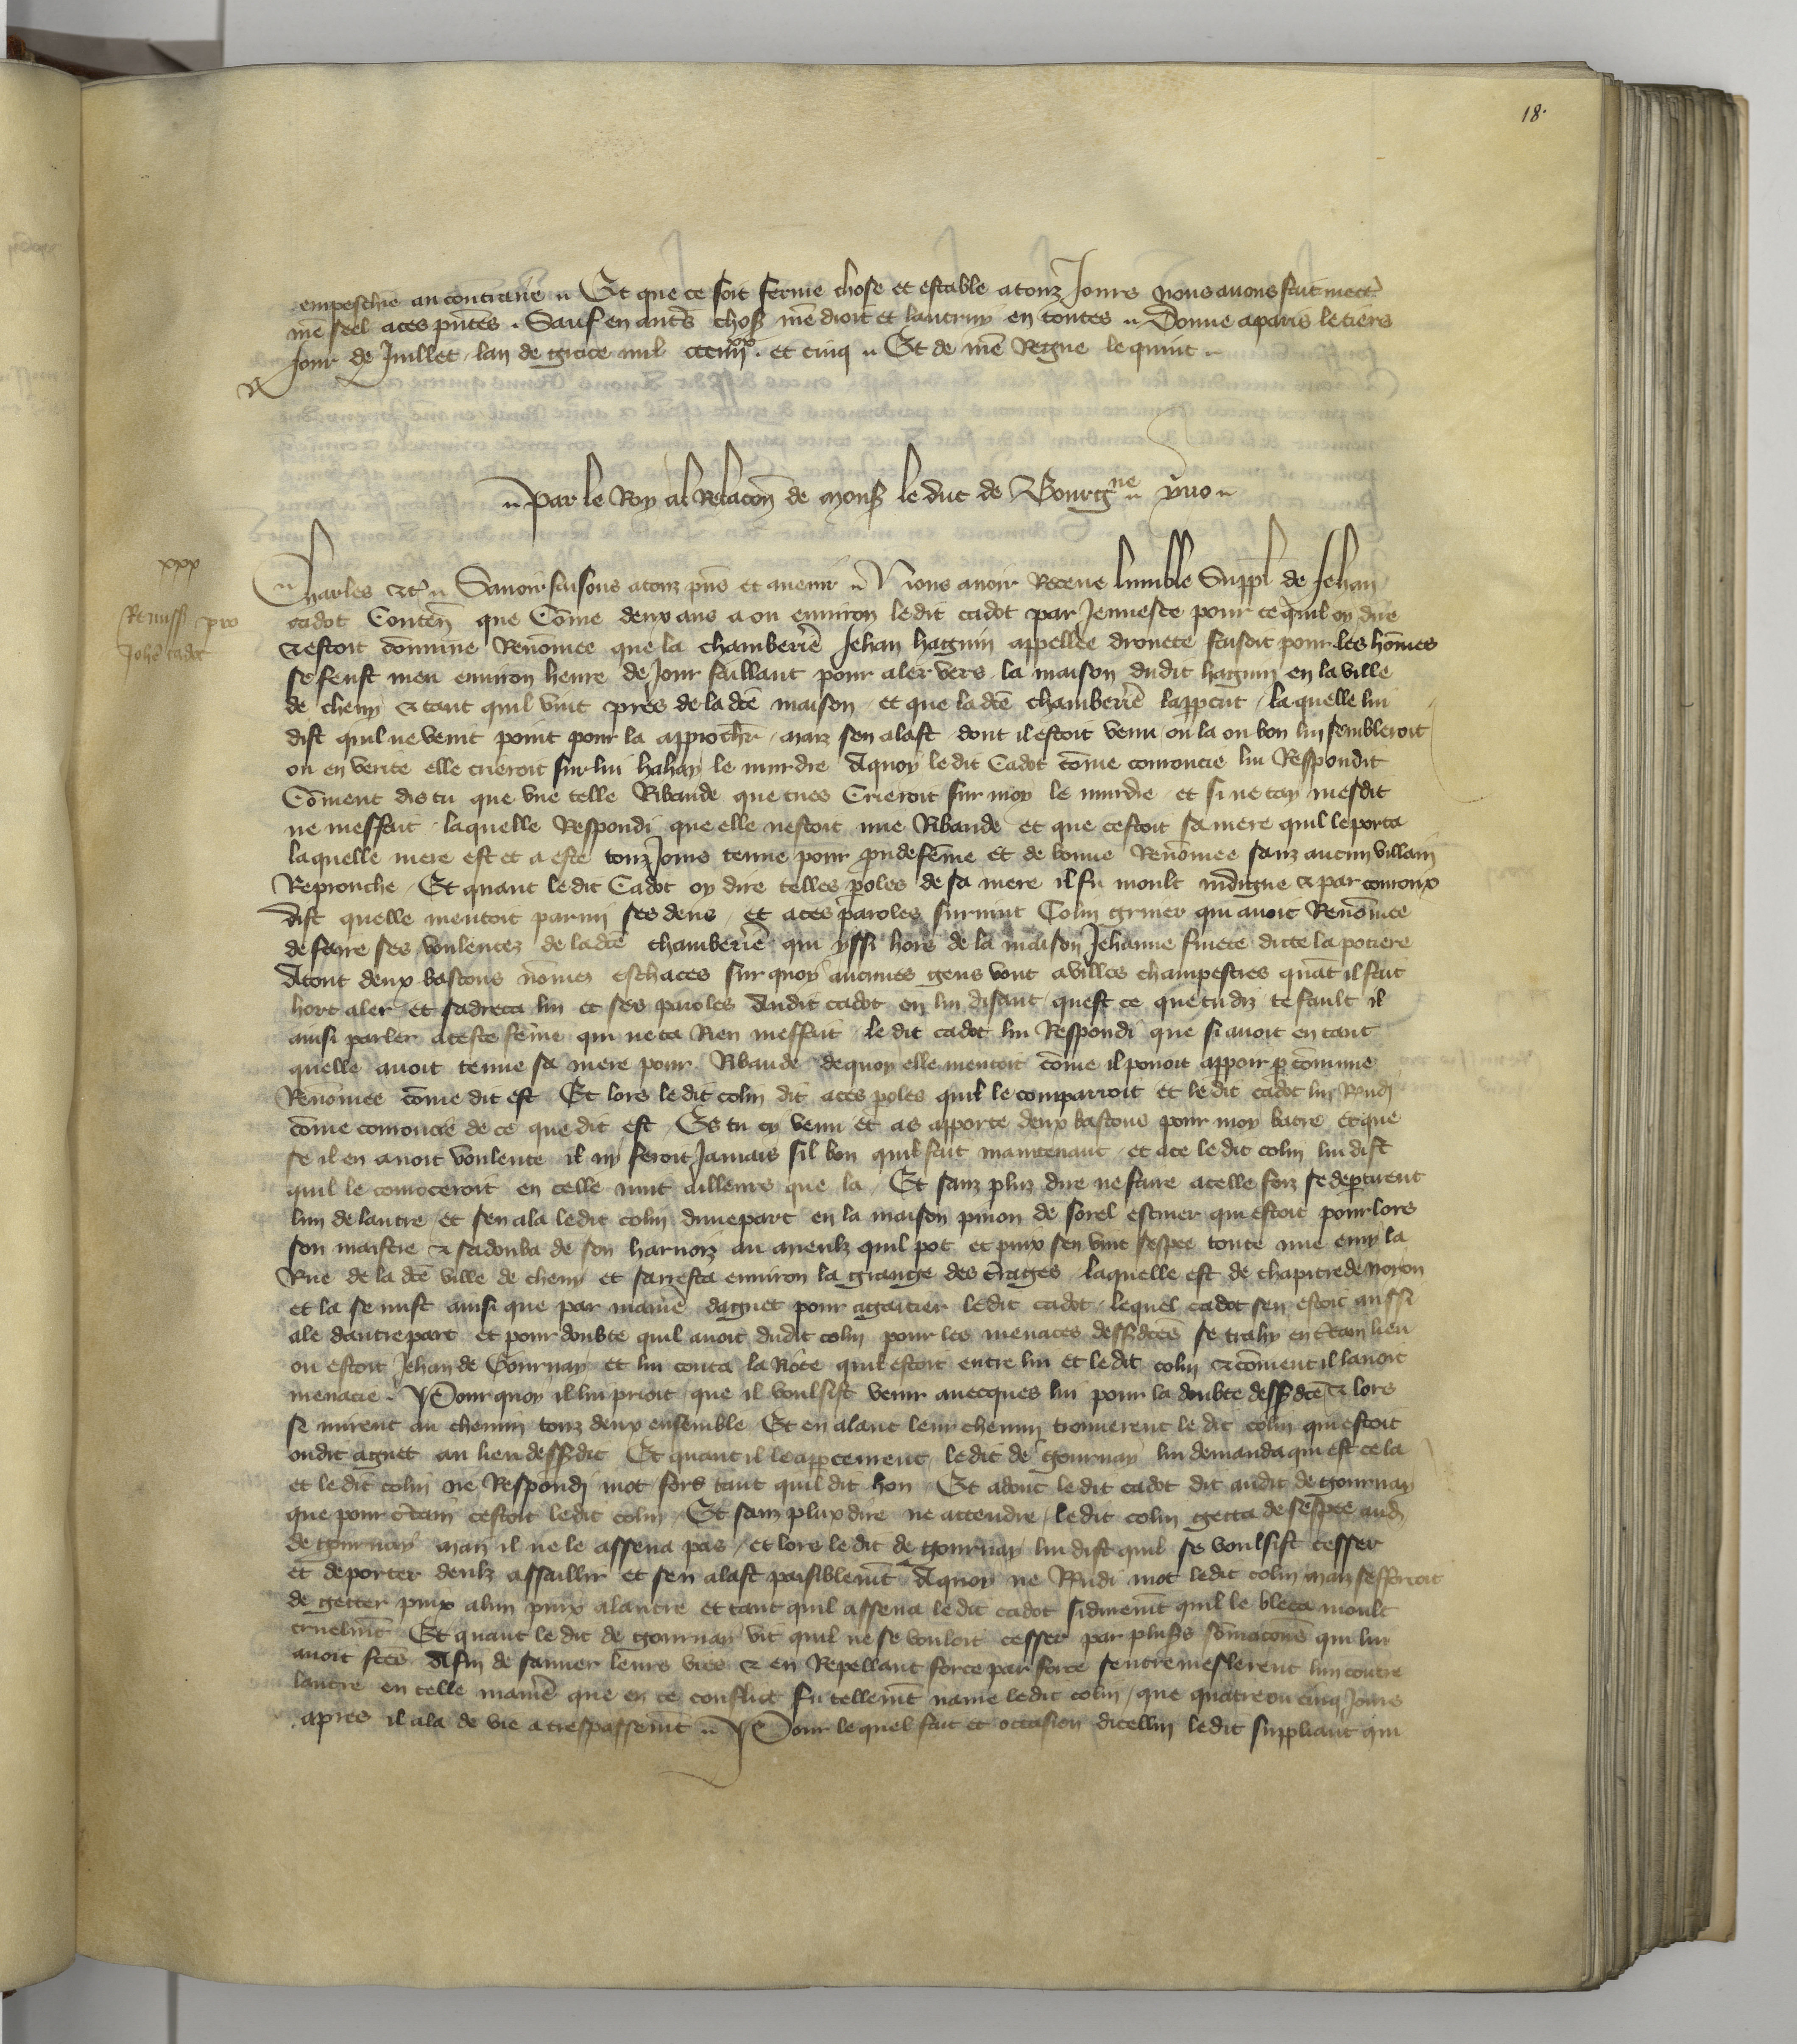 18.
empeschie au contraire. Et que ce soit ferme chose et estable a touz Jours Nous avons fait mectre
nre seel a ces pntes. Sauf en autres choses nre droit et lautruy en toutes. Donne a paris le tiers
Jour de Juillet lan de grace mil ccc iiii xx. et cinq. Et de nre Regne le quint
Par le Roy a la Relacon de mons le duc de Bourgne yvo
xxx
Remiss pro
Johe cadot
Charles etc Savoir faisons a touz pns et avenir Nous avoir Receue lumble Suppl de Jehan
cadot Conten que Come deux ans a ou environ ledit cadot par Jeunesce pour ce quil oy dire
et estoit comune Renomee que la chamberiere Jehan haguin appellee drouete faisoit pour les homes
se feust meu environ heure de Jour faillant pour aler vers la maison dudit haguin en la ville
de cheny et tant quil vint pres de la dce maison et que la dce chamberiere lappcut laquelle lui
dist quil ne venit point pour la approcher maiz sen alast dont il estoit venu ou la ou bon lui sembleroit
ou en verite elle crieroit sur lui hahay le murdre Aquoy ledit Cadot come couroucie lui Respondit
Coment dis tu que une telle Ribaude que tu es Crieroit sur moy le murdre et si ne tay mesdit
ne meffait laquelle Respondi que elle nestoit mie Ribaude et que cestoit sa mere quil le porta
laquelle mere est et a este touz Jours tenue pour preudefeme et de bonne Renomee sanz aucun villain
Reprouche Et quant ledit Cadot oy dire telles poles de sa mere il fu moult indigne et par couroux
dist quelle mentoit parmi ses dens et a ces paroles survint Colin gruier qui avoit Renomee
de faire ses voulentez de la dce chamberiere qui yssi hors de la maison Jehanne finete dicte la potiere
Atout deux bastons nomez eschaces sur quoy aucunes gens vont a villes champestres quat il fait
hort aler et sadreca lui et ses paroles audit cadot en lui disant quest ce que tu diz te fault il
ainsi parler a ceste feme qui ne ta Rien meffait ledit cadot lui Respondi que si avoit en tant
quelle avoit tenue sa mere pour Ribaude de quoy elle mentoit come il povoit apparoir p comune
Renomee come dit est Et lors ledit colin dit a ces poles quil le comparroit et ledit cadot lui Rndi
come couroucie de ce que dit est Es tu cy venu et as apporte deux bastons pour moy batre et que
se il en avoit voulente il ny feroit Jamais sil bon quil fait maintenant et a ce ledit colin lui dist
quil le couroceroit en celle nuit ailleurs que la Et sanz pluz dire ne faire a celle foiz se deptirent
lun de lautre et sen ala ledit colin dune part en la maison pinon de sorel escuier qui estoit pour lors
son maistre et sadouba de son harnoiz au mieulx quil pot et puix sen vint sespee toute nue emy la
Rue de la dce ville de cheny et sarresta environ la grange des trages laquelle est de chapitre de noion
et la se mist ainsi que par maniere daguet pour agaitier ledit cadot lequel cadot sen estoit aussi
ale dautre part et pour doubte quil avoit dudit colin pour les menaces dessusdces se trahy en ctain lieu
ou estoit Jehan de Gournay et lui conta la Riote quil estoit entre lui et ledit colin et coment il lavoit
menacie Pour quoy il lui prioit que il voulsist venir avecques lui pour la doubte dessdce et lors
se mirent au chemin touz deux ensemble Et en alant leur chemin trouverent ledit colin qui estoit
oudit aguet au lieu dessdit Et quant il lappceurent ledit de gournay lui demanda qui est ce la
et ledit colin ne Respondi mot fors tant quil dit hon Et adonc ledit cadot dit audit de gournay
que pour ctain cestoit ledit colin Et sanz plux dire ne attendre ledit colin getta de sespee aud
de gournay maiz il ne le assena pas et lors ledit de gournay lui dist quil se voulsist cesser
et deporter deulx assaillir et sen alast paisiblemt Aquoy ne Rndi mot ledit colin maiz sefforcoit
de getter puix alun puix alautre et tant quil assena ledit cadot si durement quil le bleca moult
cruelmt Et quant ledit de gournay vit quil ne se vouloit cesser par pluss somacions qui lui
avoit fces Afin de sauver leurs vies et en Repellant force par force sentremeslerent lun contre
lautre en celle maniere que en ce conflict fu tellemt navre ledit colin que quatre ou cinq Jours
apres il ala de vie a trespassemt Pour lequel fait et occasion dicellui ledit suppliant qui